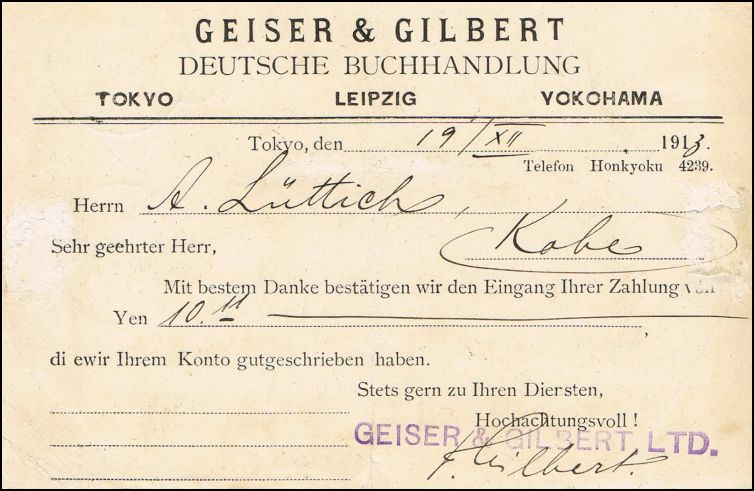 GEISER & GILBERT
DEUTSCHE BUCHHANDLUNG
TOKYO LEIPZIG YOKOHAMA
Tokyo, den 19/XII 1913.
Telefon Honkyoku 4239.
Herrn A. Lüttich,
Sehr geehrter Herr, Kobe
Mit bestem Danke bestätigen wir den Eingang Ihrer Zahlung von
Yen 10.11 ,
di ewir Ihrem Konto gutgeschrieben haben.
Stets gern zu Ihren Diersten,
Hochachtungsvoll !
GEISER & GILBERT LTD.
F. Gilbert.